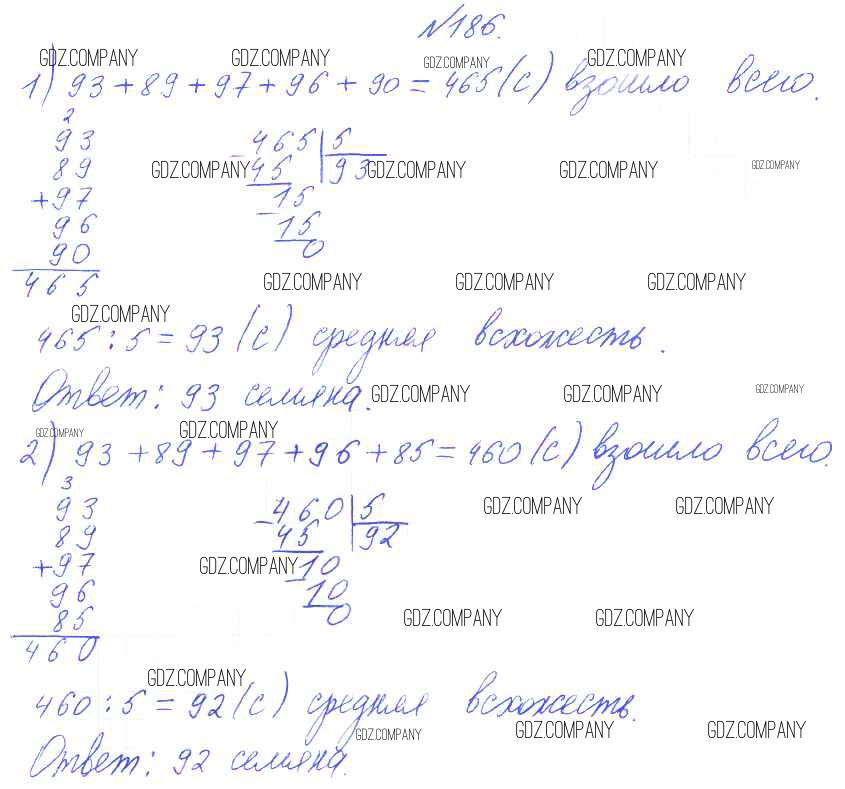 №186.
GDZ.COMPANY GDZ.COMPANY GDZ.COMPANY GDZ.COMPANY
1) 93 + 89 + 97 + 96 + 90 = 465 (с) взошло всего.
2
93
89
+97
96
90
465
465 | 5
- 45 93
15
- 15
0
GDZ.COMPANY GDZ.COMPANY GDZ.COMPANY GDZ.COMPANY
GDZ.COMPANY GDZ.COMPANY GDZ.COMPANY
GDZ.COMPANY
465 : 5 = 93 (с) средняя всхожесть.
Ответ: 93 семяна.
GDZ.COMPANY GDZ.COMPANY GDZ.COMPANY
GDZ.COMPANY GDZ.COMPANY
2) 93 + 89 + 97 + 96 + 85 = 460 (с) взошло всего.
3
93
89
+97
96
85
460
- 460 | 5
45 92
- 10
10
0
GDZ.COMPANY GDZ.COMPANY
GDZ.COMPANY
GDZ.COMPANY GDZ.COMPANY
GDZ.COMPANY
460 : 5 = 92 (с) средняя всхожесть.
GDZ.COMPANY GDZ.COMPANY GDZ.COMPANY
Ответ: 92 семяна.